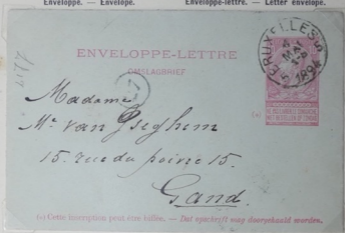 Enveloppe. — Envelope. Enveloppe-lettre. — Letter envelope.
BRUXELLES 5
MAI
1894
ENVELOPPE-LETTRE
OMSLAGBRIEF
Madame
Me van Iseghem
15. rue du poivre 15.
Gand.
(1) Cette inscription peut être biffée. — Dat opschrift mag doorgehaald worden.